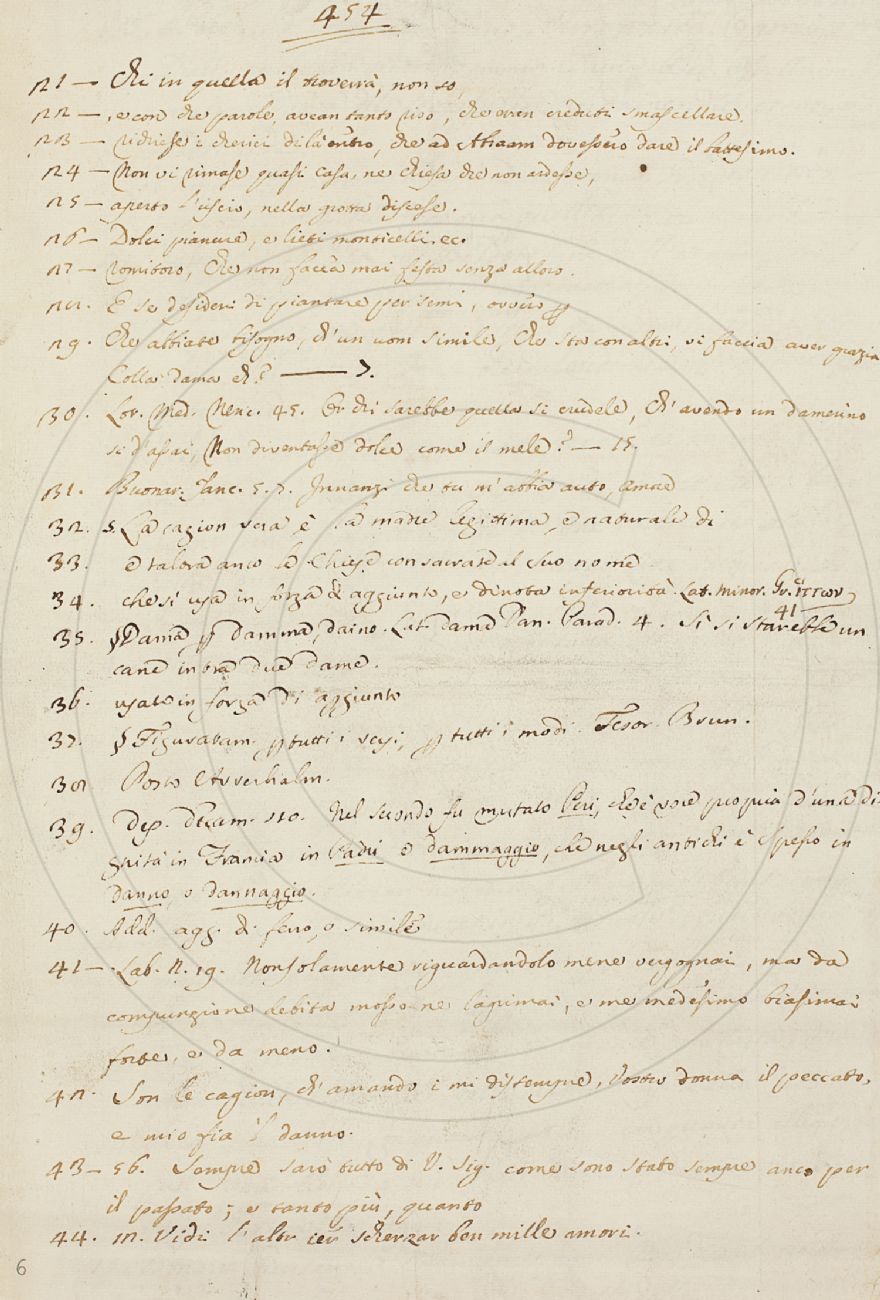 454
21 — Chi in quella il troverrà, non so,
22 — , e con che parole, avean tanto riso, che eran creduti smascellare.
23 — richiese i cherici di là entro, che ad Abraam dovessero dare il battesimo.
24 — Non vi rimase quasi casa, ne chiesa che non ardesse,
25 — aperto l'uscio, nella grotta discese.
26 — Dolci pianure, e lieti monticelli. ec.
27 — romitoro, che non faccà mai festa senza alloro.
28. E se desideri di piantare per semi, ovvero
29. Che abbiate bisogno, ch'un uom simile, che sta con altri, vi faccia aver grazia
Colla dama eh? —— 7.
30. Lor. Med. Nenc. 45. Or chi sarebbe quella si crudele, Ch'avendo un damerino
si d'assai, Non diventasse dolce come il mele? — 15.
31. Buonar. Tanc. 5. 7. Innanzi che tu m'abbia auto, Amae
32. §. La cagion vera è la madre legittima, e naturale di
33. e talora anco le Chiese consacrate al suo nome
34. che si usa in forza di aggiunto, e dinota inferiorità. Lat. minor. Gr.
35. § Dama p damma, daino. Lat. dame Dan. Parad. 4. Sì si starebbe un
41
cane intra due dame.
36. usate in forza di aggiunto
37. § Figuratam. p tutti i versi, p tutti i modi. Tesor. Brun.
38 Posto Avverbialm.
39. Dep. Decam. 110. Nel secondo fu mutato Peri, che è voce propria d'una di-
gnità in Francia in Padri e dammaggio, che negli antichi è spesso in
danno, o dannaggio.
40. Add. agg. di ferro, o simile
41 — Lab. N. 19. Non solamente riguardandolo mene vergognai, ma da
compunzione debita mosso ne lagrimai, e me medesimo biasimai
forte, e da meno.
42. Son le cagion, ch'amando i mi distempre, Vostro donna il peccato,
e mio fia 'l danno.
43 — 56. Sempre sarò tutto di V. Sig. come sono stato sempre anco per
il passato; e tanto più, quanto
44. 12. Vidi l'altr ier scherzar ben mille amori.
6